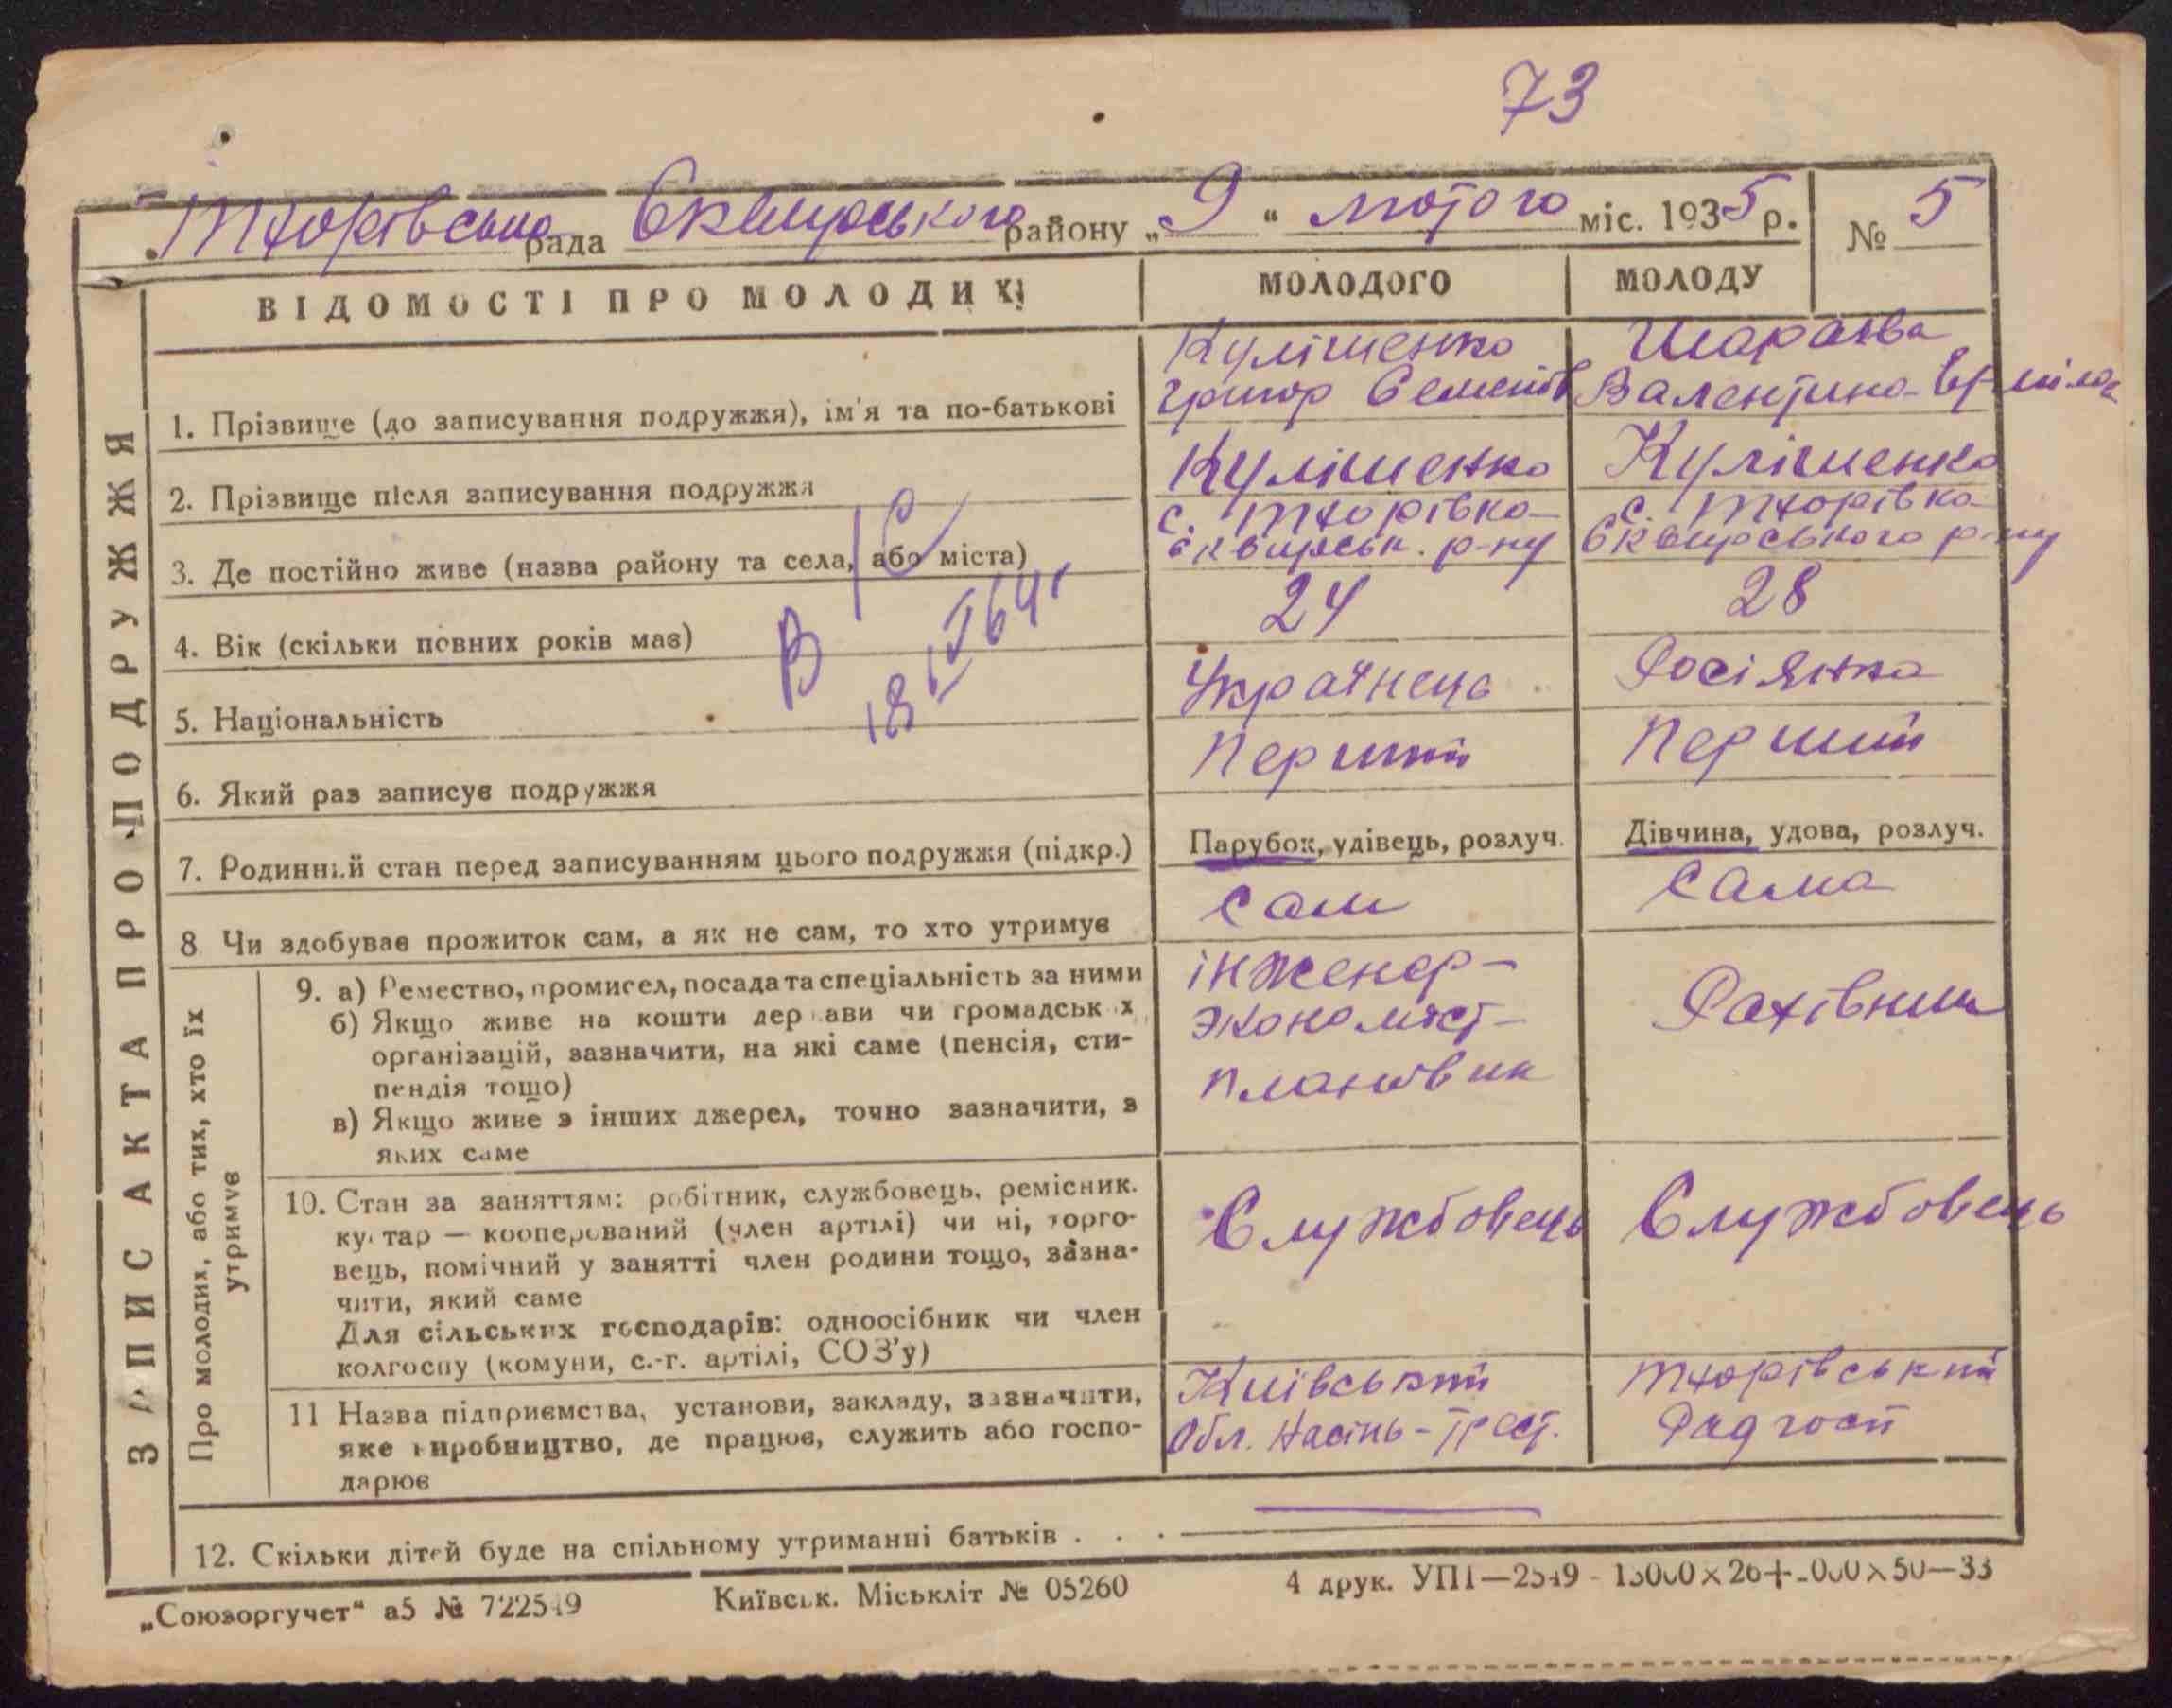 73
Тхорівська рада Сквирського району „9“ лютого міс. 1935 р. № 5
ВІДОМОСТІ ПРО МОЛОДИХ
МОЛОДОГО
МОЛОДУ
ЗАПИС АКТА ПРО ПОДРУЖЖЯ
1. Прізвище (до записування подружжя), ім'я та по-батькові
Кулішенко
Григор Семенов
Шараєва
Валентина
2. Прізвище після записування подружжя
Кулішенко
Кулішенко
3. Де постійно живе (назва району та села, або міста)
с. Тхорівка
Сквирськ. р-ну
с. Тхорівка
Сквирського р-ну
4. Вік (скільки повних років має)
24
28
5. Національність
Українець
Росіянка
6. Який раз записує подружжя
Перший
Перший
7. Родинний стан перед записуванням цього подружжя (підкр.)
Парубок, удівець, розлуч.
Дівчина, удова, розлуч.
8 Чи здобуває прожиток сам, а як не сам, то хто утримує
сам
сама
Про молодих, або тих, хто їх
утримує
9. а) Ремество, промисел, посада та спеціальність за ними
б) Якщо живе на кошти держави чи громадських
організацій, зазначити, на які саме (пенсія, сти-
пендія тощо)
в) Якщо живе з інших джерел, точно зазначити, з
яких саме
інженер-
экономіст-
плановик
Рахівник
10. Стан за заняттям: робітник, службовець, ремісник.
кустар — кооперований (член артілі) чи ні, торго-
вець, помічний у занятті член родини тощо, зазна-
чити, який саме
Для сільських господарів: одноосібник чи член
колгоспу (комуни, с.-г. артілі, СОЗ'у)
Службовець
Службовець
11 Назва підприємства, установи, закладу, зазначити,
яке виробництво, де працює, служить або госпо-
дарює
Київський
Обл. Насінь-трест.
Тхорівський
Радгосп
12. Скільки дітей буде на спільному утриманні батьків . . .
„Союзоргучет“ а5 № 722549
Київськ. Міськліт № 05260
4 друк. УПП—2549